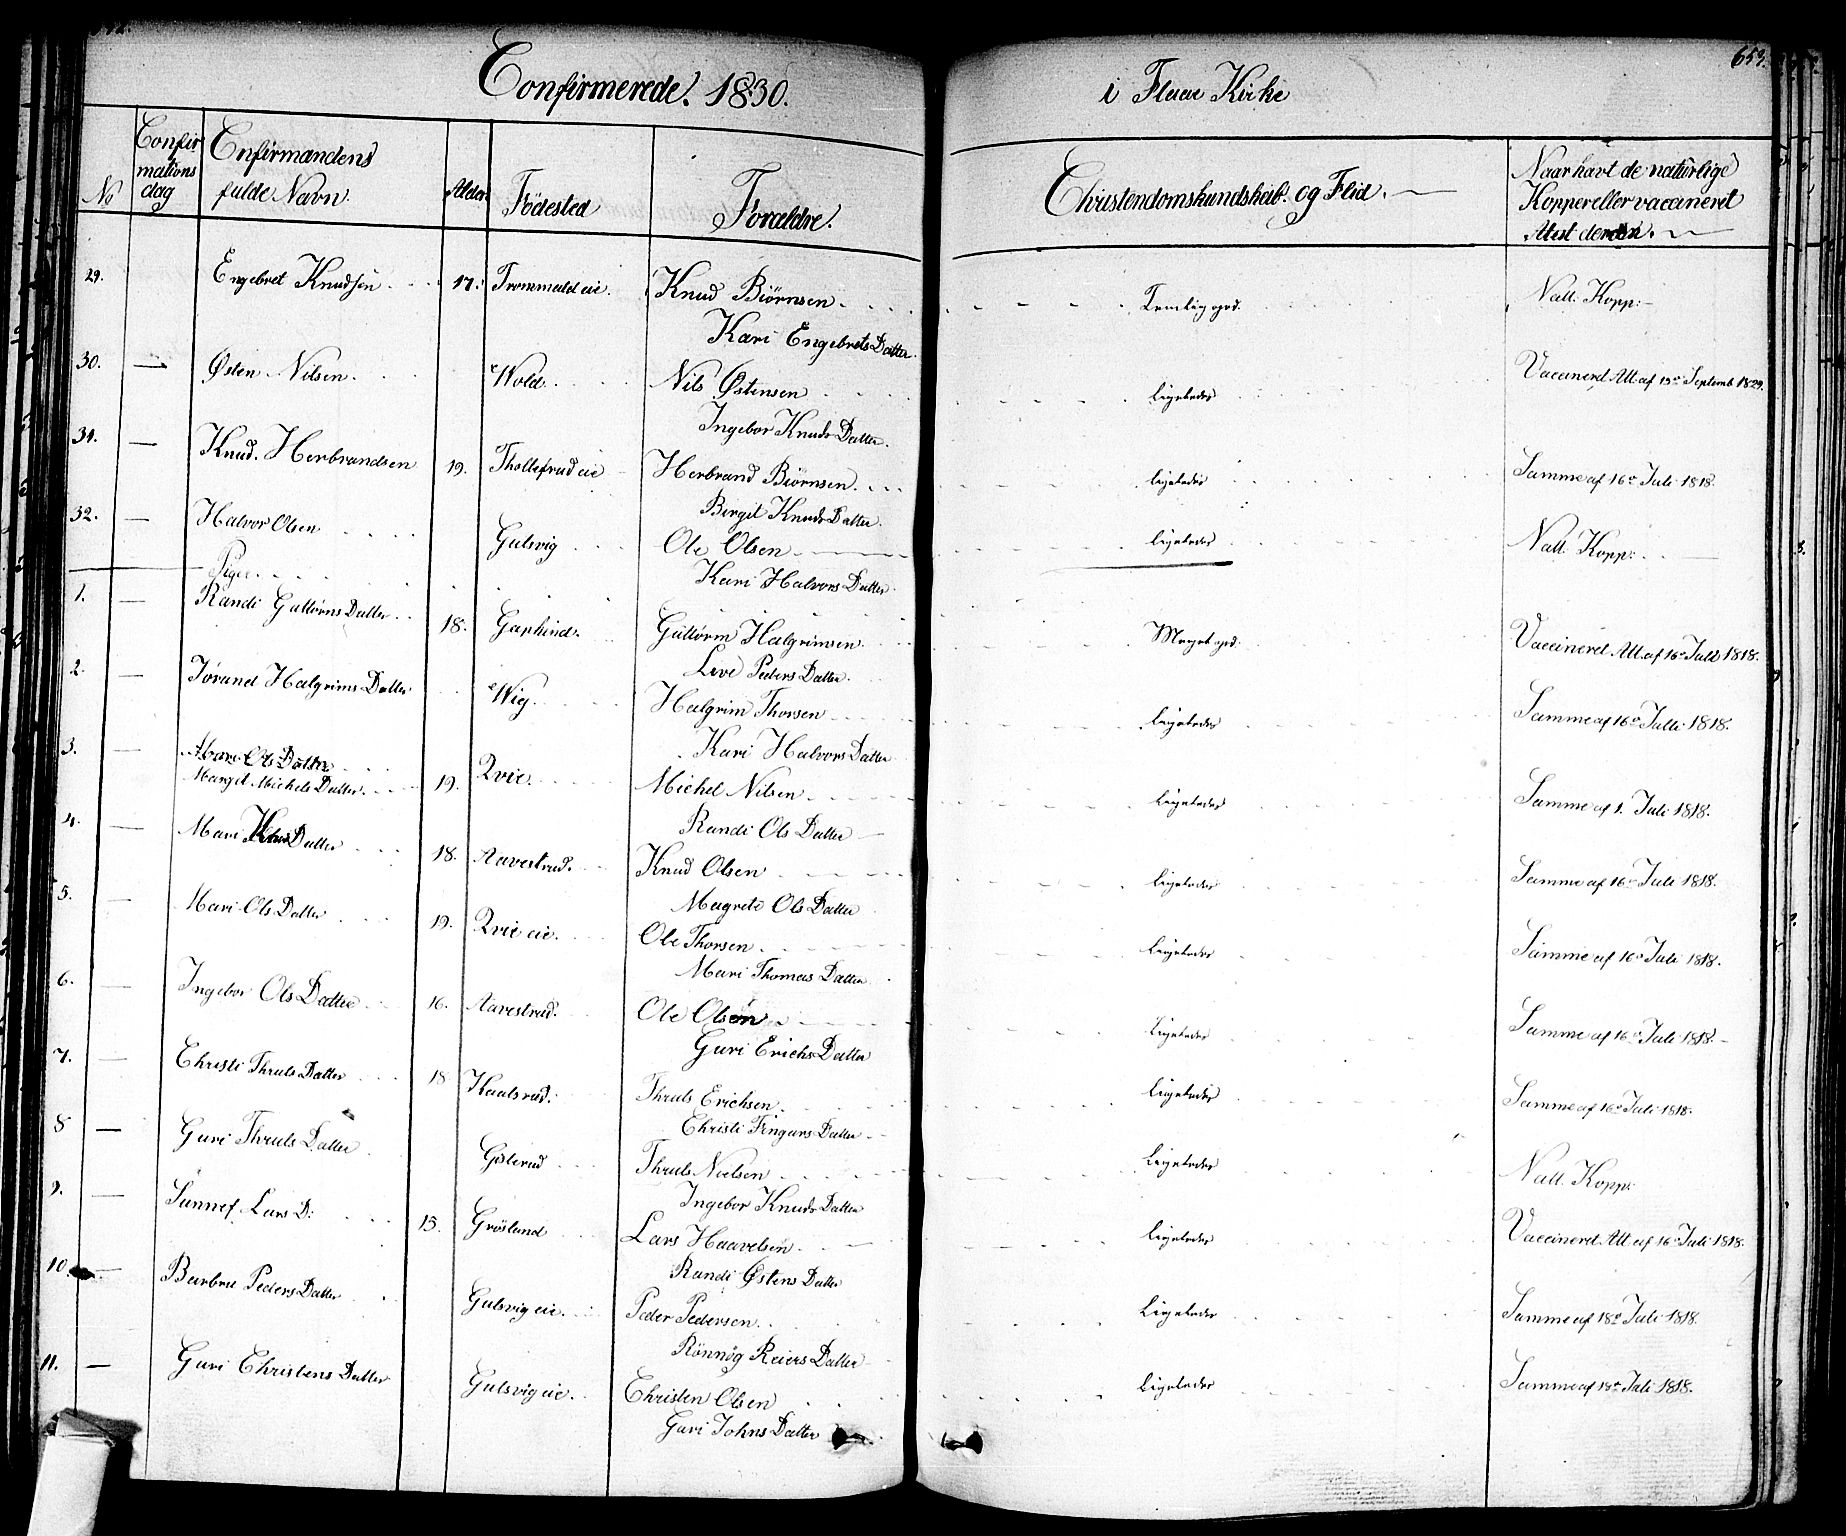 Confirmerede. 1830.
i Flaae Kirke
659.
No
Confirmations dag
Confirmandens fulde Navn.
Alder
Födested
Forældre.
Christendomskundskab. og Flid.
Naar havt de natürlige Kopper eller vaccineret Atest derom.
29. Engebret Knudsen 17. Trommald eie. Knud Biörnsen Temlig god. Natt. Kopp:
Kari Engebrets Datter
30. — Østen Nilsen Wold. Nils Østensen Ligeledes Vaccinerd Att. af 19de Septemb 1829.
Ingebor Knuds Datter
31. — Knud. Herbrandsen 19. Thollefrud eie Herbrand Biörnsen. Ligeledes Samme af 16de Juli 1818.
Birgit Knuds Datter
32. — Halvor Olsen Gulsvig Ole Olsen Ligeledes Natt. Kopp:
Kari Halvors Datter
Piger.
1. — Randi Guttorms Datter 18. Guttorm Halgrimsen Meget god. Vaccinerd Att. af 16de Juli 1818.
Live Peders Datter
2. — Jörand Halgrims Datter Wig. Halgrim Thorsen Ligeledes Samme af 16de Julli 1818.
Kari Halvors Datter
3. — Mari Ols Datter
Margit Michels Datter. 19. Qvie. Michel Nilsen Ligeledes Samme af 1. Juli 1818.
Randi Ols Datter
4. — Mari Knuds Datter 18. Aavestrud. Knud Olsen Ligeledes Samme af 16de Juli 1818.
Magrete Ols Datter
5. — Mari Ols Datter 19. Qvie eie. Ole Thorsen Ligeledes Samme af 16de Juli 1818.
Mari Thomas Datter
6. — Ingebor Ols Datter 16. Aavestrud. Ole Olsen Ligeledes Samme af 16de Juli 1818.
Guri Erichs Datter
7. — Christi Thruls Datter 18 Kaalsrud. Thruls Erichsen Ligeledes Samme af 16de Juli 1818.
Christi Fingars Datter
8 — Guri Thruls Datter Gislerud Thruls Nielsen Ligeledes Natt. Kopp:
Ingebor Knuds Datter
9. — Sunnef. Lars D: 15. Gröslund Lars Haavelsen Ligeledes Vaccinerd Att af 16de Juli 1818.
Randi Østens Datter
10. — Barbru Peders Datter Gulsvig eie. Peder Pedersen Ligeledes Samme af 18de Juli 1818.
Rönnög Reiers Datter
11. — Guri Christens Datter Gulsvig eie. Christen Olsen Ligeledes Samme af 18de Juli 1818.
Guri Johns Datter